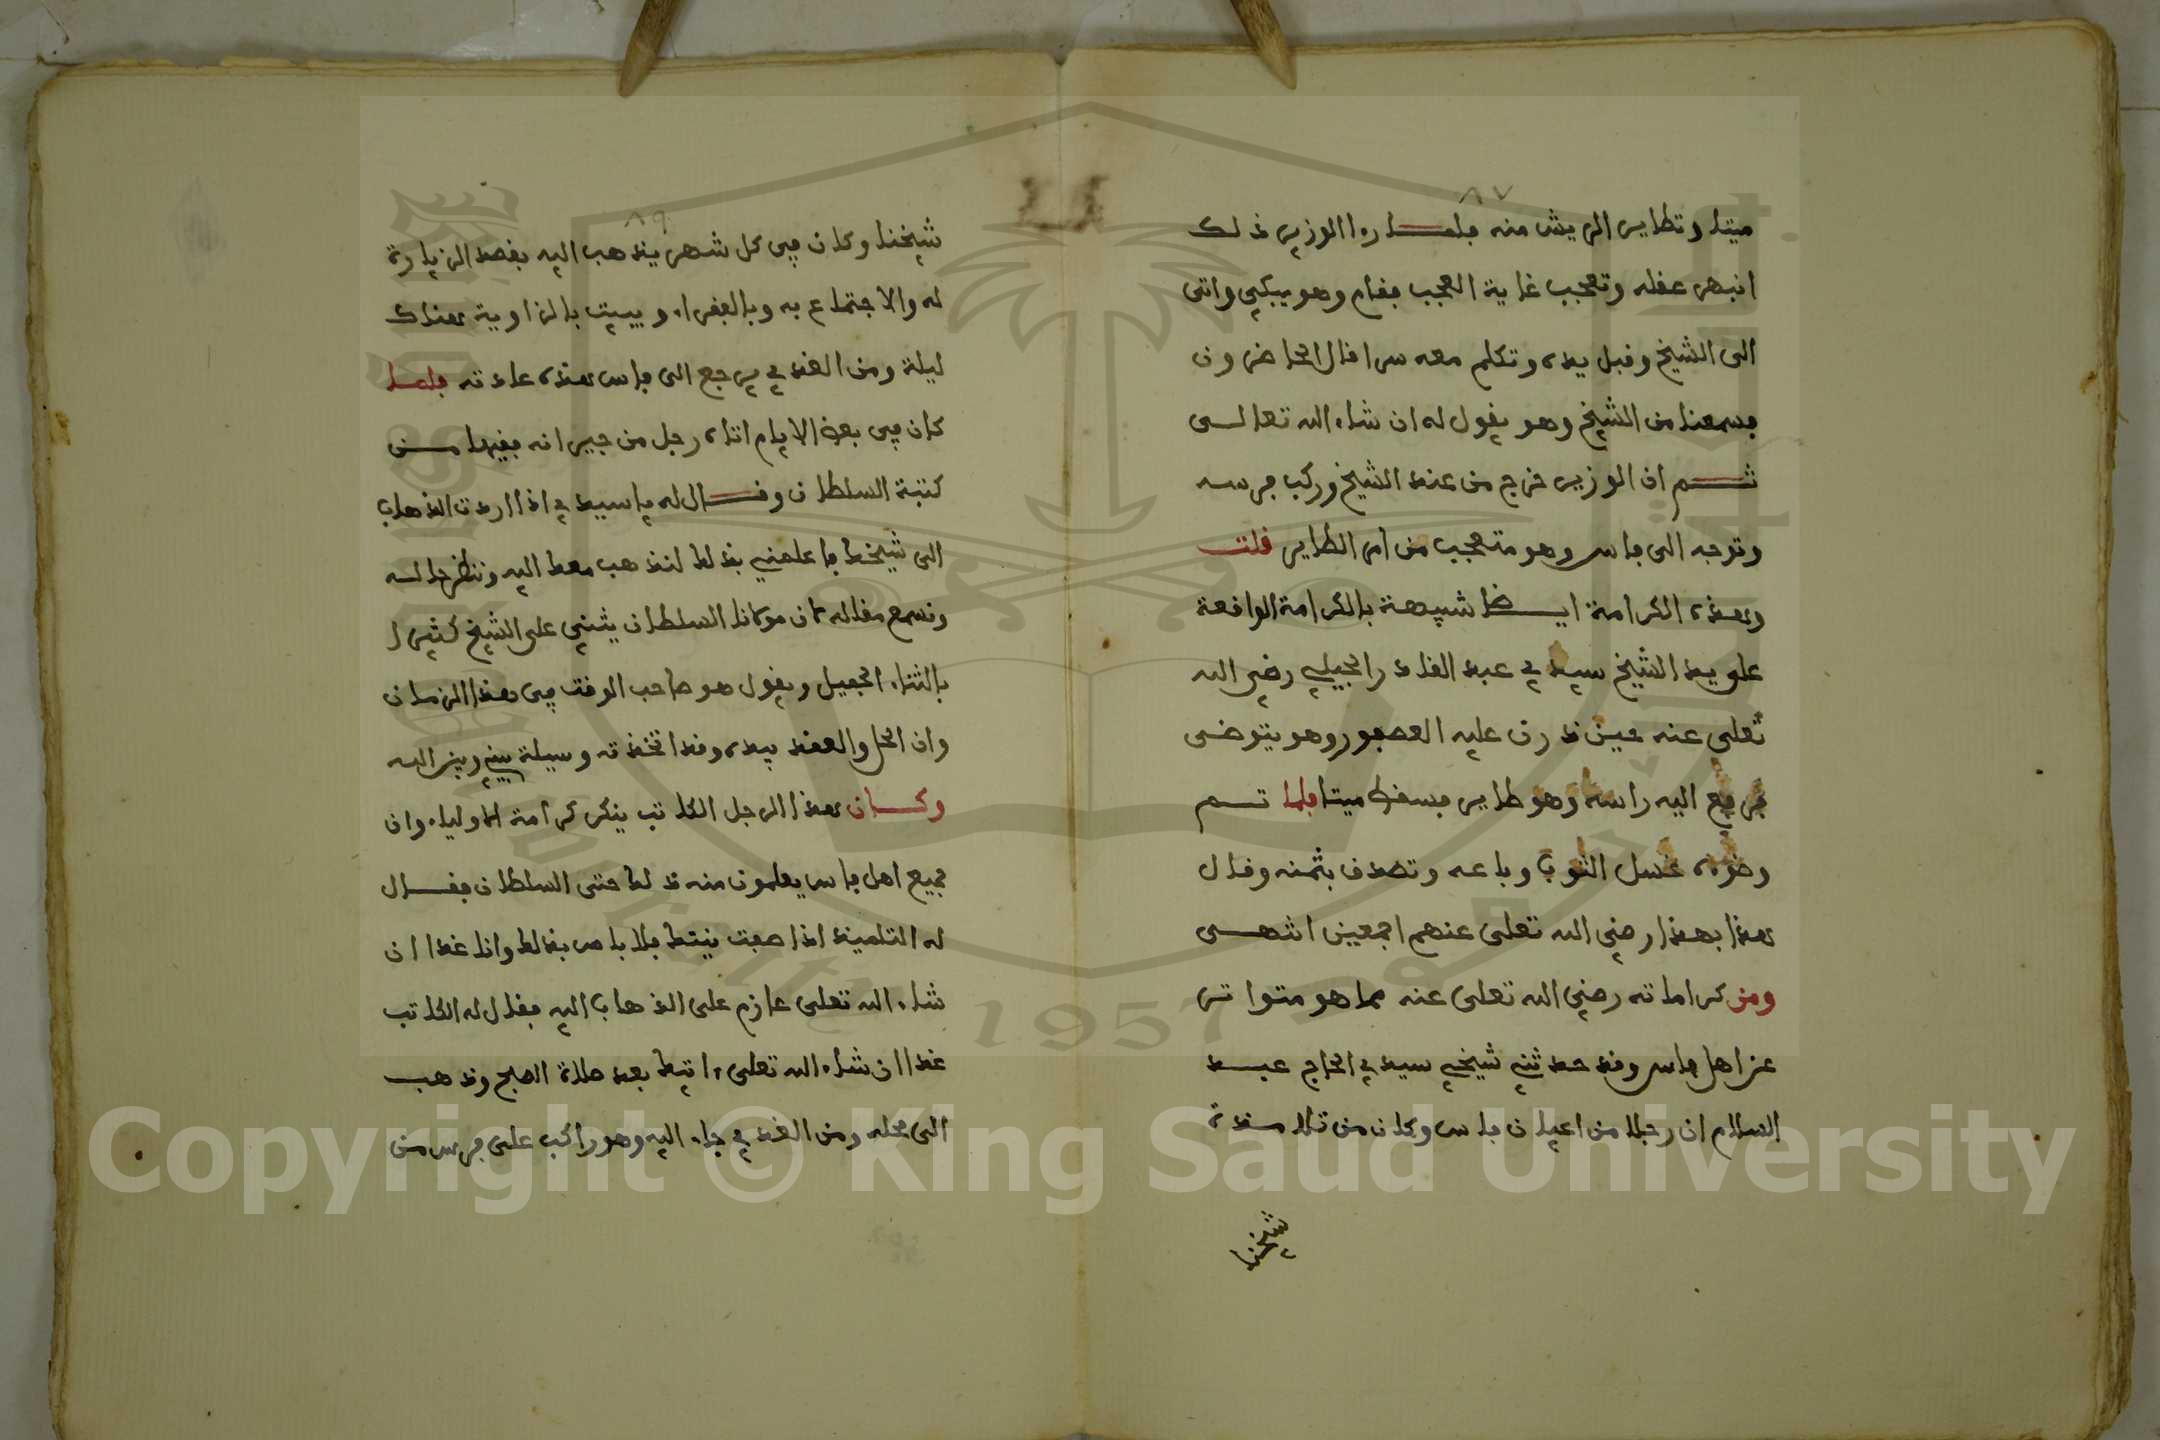 ٨٧
ميتا وتطاير الريش منه فلما را الوزير ذلك
انبهر عقله وتعجب غاية العجب فقام وهو يبكي واتى
الى الشيخ وقبل يده وتكلم معه سرا قال الحاضرون
فسمعنا من الشيخ وهو يقول له ان شاء الله تعالى
ثم ان الوزير خرج من عند الشيخ وركب فرسه
وتوجه الى فاس وهو متعجب من امر الطاير قلت
وهذه الكرامة ايضا شبيهة بالكرامة الواقعة
على يد الشيخ سيدي عبد القادر الجيلي رضي الله
تعلى عنه حين ذرق عليه العصفور وهو يتوضى
فرفع اليه راسه وهو طاير فسقط ميتا فلما تم
وضوءه غسل الثوب وباعه وتصدق بثمنه وقال
هذا بهذا رضي الله تعلى عنهم اجمعين انتهى
ومن كراماته رضي الله تعلى عنه مما هو متواتر
عن اهل فاس وقد حدثني شيخي سيدي الحاج عبد
السلام ان رجلا من اعيان فاس وكان من تلامذة
شيخنا
٨٩
شيخنا وكان في كل شهر يذهب اليه بقصد الزيارة
له والاجتماع به وبالفقراء ويبيت بالزاوية هناك
ليلة ومن الغد يرجع الى فاس هذه عادته فلما
كان في بعض الايام اتاه رجل من جيرانه فقيها من
كتبة السلطان وقال له ياسيدي اذا اردت الذهاب
الى شيخك فاعلمني بذلك لنذهب معك اليه وننظر حاله
ونسمع مقاله لان مولانا السلطان يثني على الشيخ كثيرا
بالثناء الجميل ويقول هو صاحب الوقت في هذا الزمان
وان الحل والعقد بيده وقد اتخذته وسيلة بيني وبين الله
وكان هذا الرجل الكاتب ينكر كرامة الاولياء وان
جميع اهل فاس يعلمون منه ذلك حتى السلطان فقال
له التلميذ اذا صفت نيتك فلا باس بذالك وانا غدا ان
شاء الله تعلى عازم على الذهاب اليه فقال له الكاتب
غدا ان شاء الله تعلى ءاتيك بعد صلاة الصبح وذهب
الى محله ومن الغد جاء اليه وهو راكب على فرس من
Copyright © King Saud University
1957